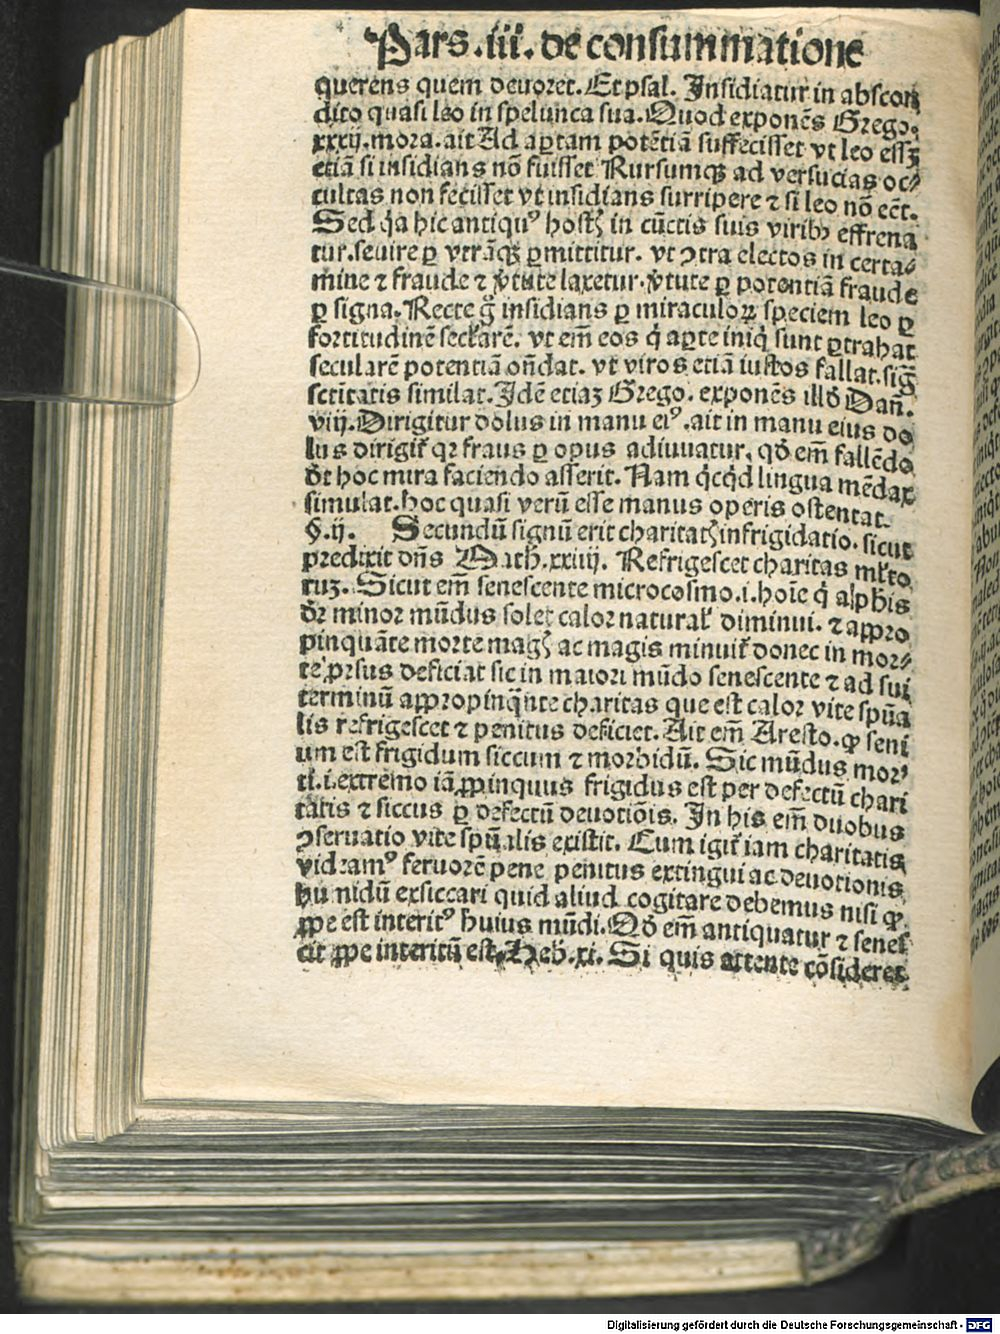 Pars .iii. de consummatione
querens quem deuoret. Et psal. Insidiatur in abscon
dito quasi leo in spelunca sua. Quod exponẽs Grego.
xxxij. mora. ait Ad aꝑtam potẽtiã suffecisset vt leo essꝫ
etiã si insidians nõ fuisset Rursumqꝫ ad versucias oc⸗
cultas non fecisset vt insidians surripere ⁊ si leo nõ eēt.
Sed q̇a hic antiquꝰ hostꝭ in cũctis suis viribꝫ effrena
tur. seuire ꝑ vtrãqꝫ ꝑmittitur. vt ꝯtra electos in certa⸗
mine ⁊ fraude ⁊ v̓tute laxetur. v̓tute ꝑ potentiã fraude
ꝑ signa. Recte g̊ insidians ꝑ miraculoꝝ speciem leo ꝑ
fortitudinẽ seclarẽ. vt em̃ eos q̇ aꝑte iniq̇ sunt ꝑtrahat
secularẽ potentiã oñdat. vt viros etiã iustos fallat. sig̃
sctĩtatis similat. Idẽ etiaꝫ Grego. exponẽs illḋ Dañ.
viij. Dirigitur dolus in manu eiꝰ. ait in manu eius do
lus dirigit̃ qꝛ fraus ꝑ opus adiuuatur. qḋ em̃ fallẽdo
ḋt hoc mira faciendo asserit. Nam q̇cq̇d lingua mẽdax
simulat. hoc quasi verũ esse manus operis ostentat.
§.ij. Secundũ signũ erit charitatꝭ infrigidatio. sicut
predixit dñs Math̃. xxiiij. Refrigescet charitas ml̃to
ruꝫ. Sicut em̃ senescente microcosmo .i. hoĩe q̇ a ph̃is
ḋr minor mũdus solet calor natural̃ diminui. ⁊ appro
pinquãte morte magꝭ ac magis minuit̃ donec in mor⸗
te prorsus deficiat sic in maiori mũdo senescente ⁊ ad sui
terminũ appropinq̃nte charitas que est calor vite spũa
lis refrigescet ⁊ penitus deficiet. Ait em̃ Aresto. ꝙ seni
um est frigidum siccum ⁊ morbidũ. Sic mũdus morꝰ
ti .i. extremo iã ꝓpinquus frigidus est per defectũ chari
tatis ⁊ siccus ꝑ defectũ deuotiõis. In his em̃ duobus
ꝯseruatio vite spũalis existit. Cum igit̃ iam charitatis
videamꝰ feruorẽ pene penitus extingui ac deuotionis
humidũ exsiccari quid aliud cogitare debemus nisi ꝙ
ꝓpe est interitꝰ huius mũdi. Qḋ em̃ antiquatur ⁊ senes
cit ꝓpe interitũ est. Heb. xi. Si quis attente cõsideret
Digitalisierung gefördert durch die Deutsche Forschungsgemeinschaft - DFG